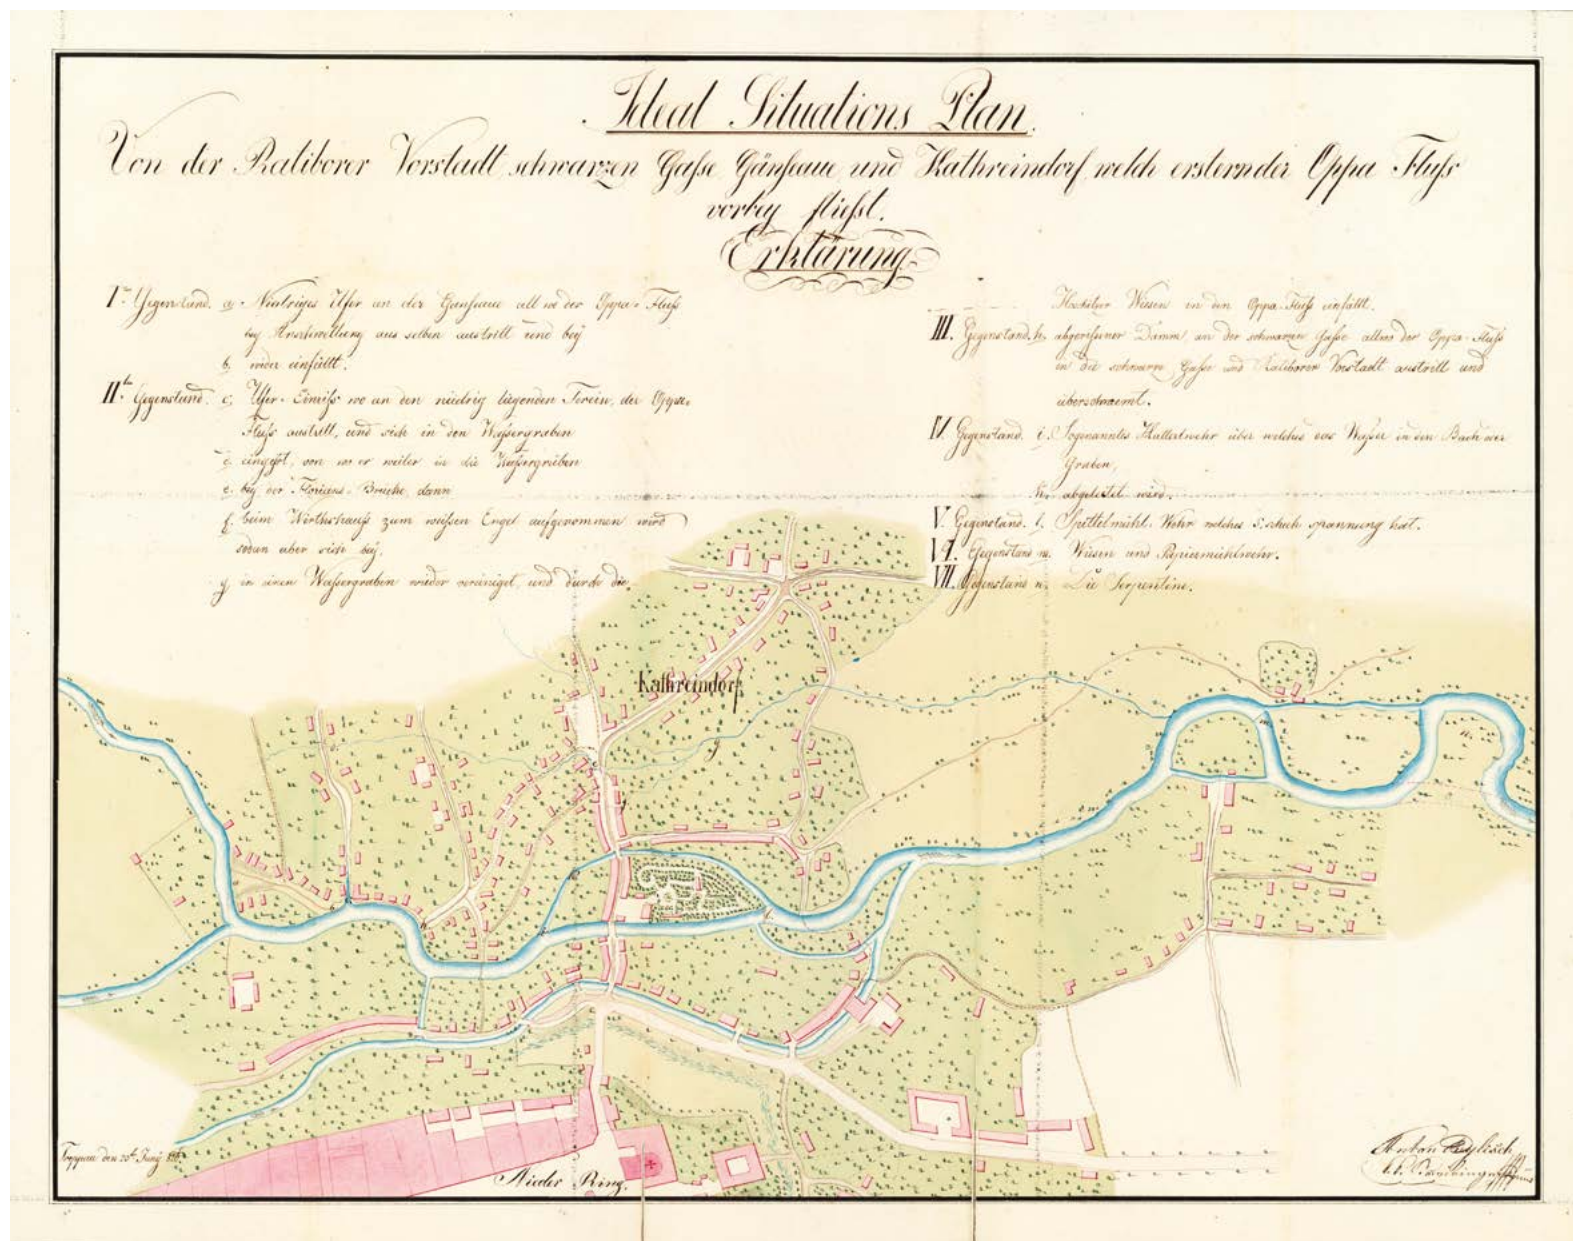 Ideal Situations Plan.
Von der Ratiborer Vorstadt schwarzen Gaſse Gänſeaue und Kathreindorf, welch ersternder Oppa Fluſs
vorbey flieſst.
Erklärung.
Iter Gegenstand. a. Niedriges Ufer an der Gänſeaue all wo der Oppa-Fluſs
bey aus selben austritt und bey
b. wider einfällt.
IIter Gegenstand. c. Ufer-Einriſs wo an den niedrig liegenden Terein, der Oppa-
Fluſs austritt, und sich in den Waſsergraben
d. eingeſst, von wo er weiter in die Waſsergräben
e. bey der Florians-Brücke, dann
f. beim Wirthshauſs zum weiſsen Engel aufgenommen wird
sodan aber sich bey,
g. in einen Waſsergraben wieder vereiniget, und durch die
Wiesen in den Oppa-Fluſs einfällt.
III. Gegenstand. h. abgeriſsener Damm an der schwarzen Gaſse allwo der Oppa-Fluſs
in die schwarze Gaſse und Ratiborer Vorstadt austritt und
überschwemt.
IV. Gegenstand. i. Sogenanntes über welches das Waſser in den Bach oder
Graben,
k. abgeleitet wird.
V. Gegenstand. l. Spittelmühl-Wehr welches 5. schuh spannung hat.
VI. Gegenstand m. Wiesen und Papiermühlwehr.
VII. Gegenstand n. Die Serpentine.
Kathreindorf
g
m
n.
l.
Nieder Ring.
Troppau den 20ten Juny
Anton
k.k.